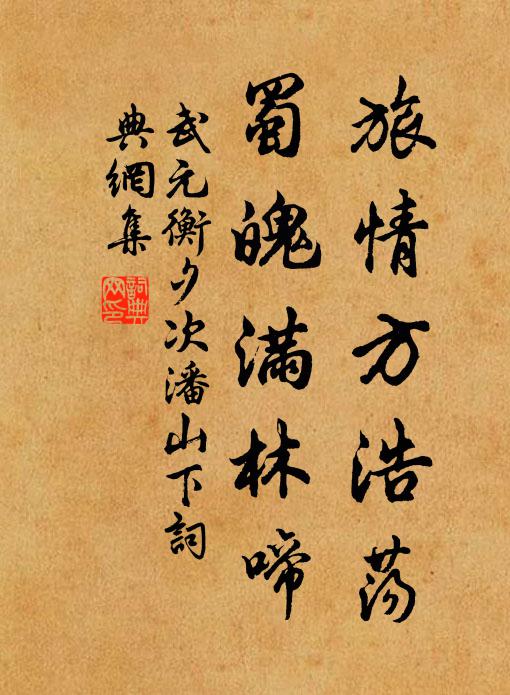 旅情方浩荡
蜀魄满林啼
武元衡夕次潘山下詞
典網集
詞典網印